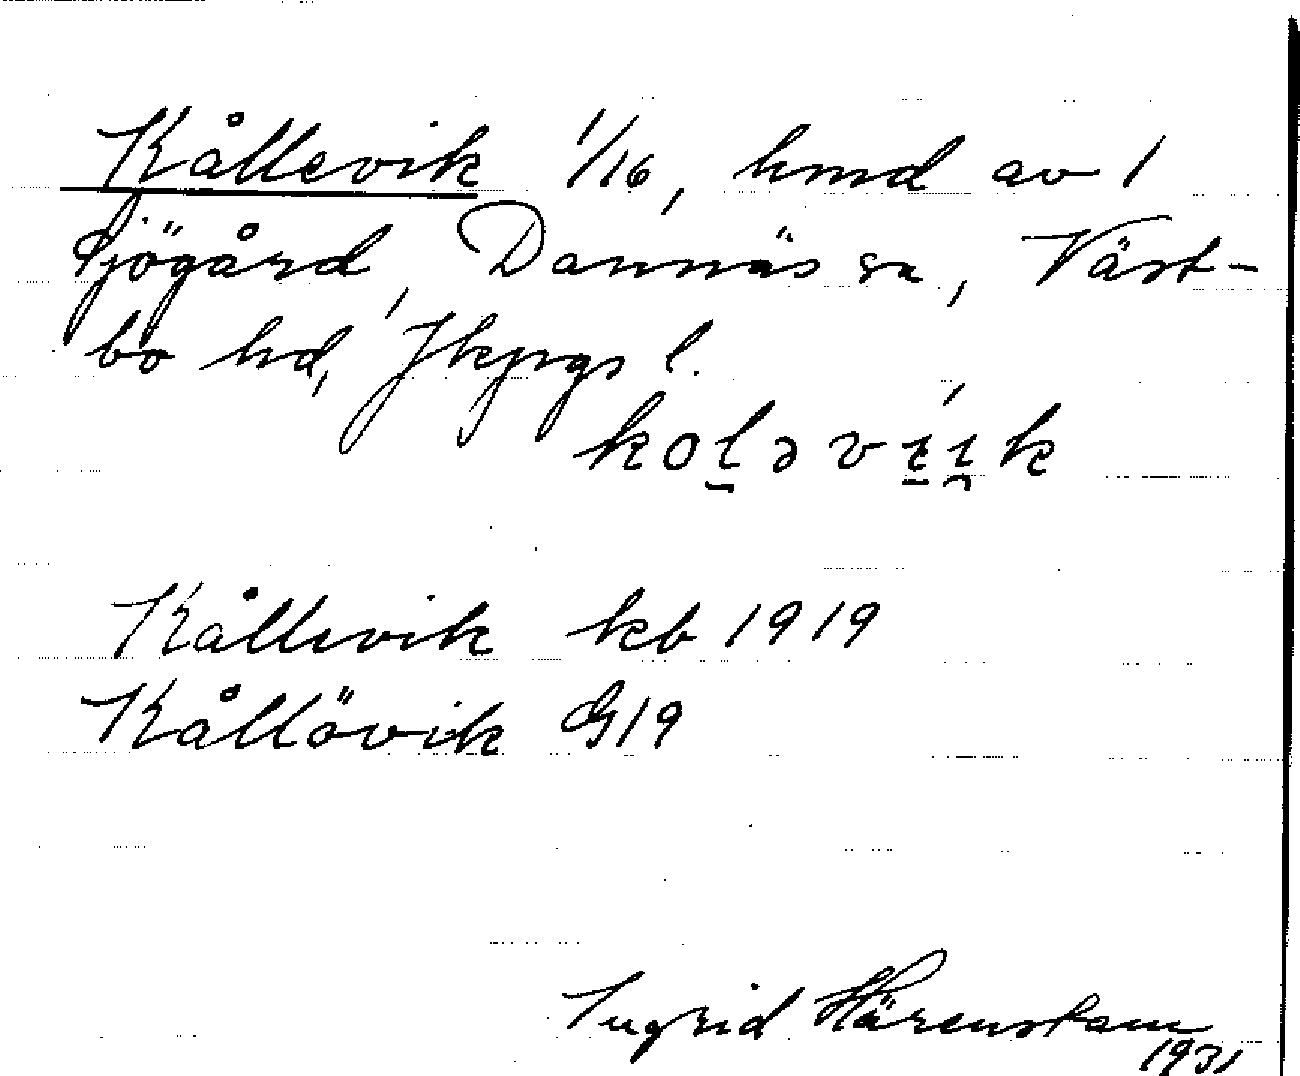 Kållevik 1/16, hmd av 1
Sjögård, Dannäs sn, Väst-
bo hd, Jkpgs l.
Kållevik kb 1919
Kållövik G19
Ingrid Härenstam
1931